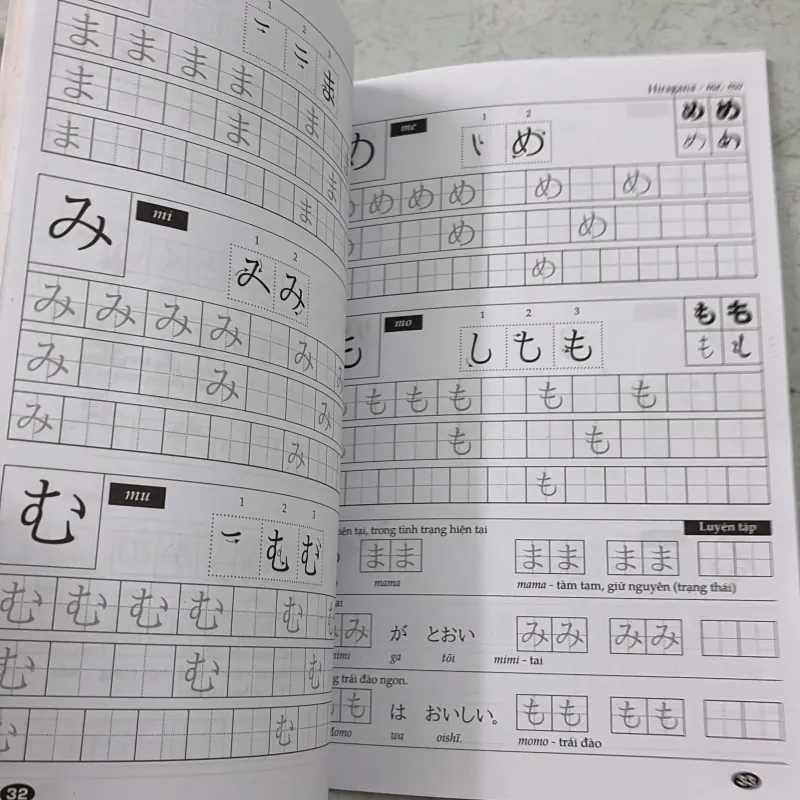 1 2 3
ま ま ま ま ま
ま ま ま
ま ま
み mi
1 2
み
み み み み み み
み み み
み み
む mu
1 2 3
む む
む む む む む む
む む む
む む
32
Hiragana / me, mo
め me
1 2
め
め め
め め
め め め め め め
め め め
め
も mo
1 2 3
し も も
も も
も も
も も も も も
も も
も
Luyện tập
tại, trong tình trạng hiện tại
まま
mama
まま まま
mama - tàm tạm, giữ nguyên (trạng thái)
み が とおい
mimi ga tōi
みみ みみ
mimi - tai
trái đào ngon.
も は おいしい。
Momo wa oishī.
もも もも
momo - trái đào
33